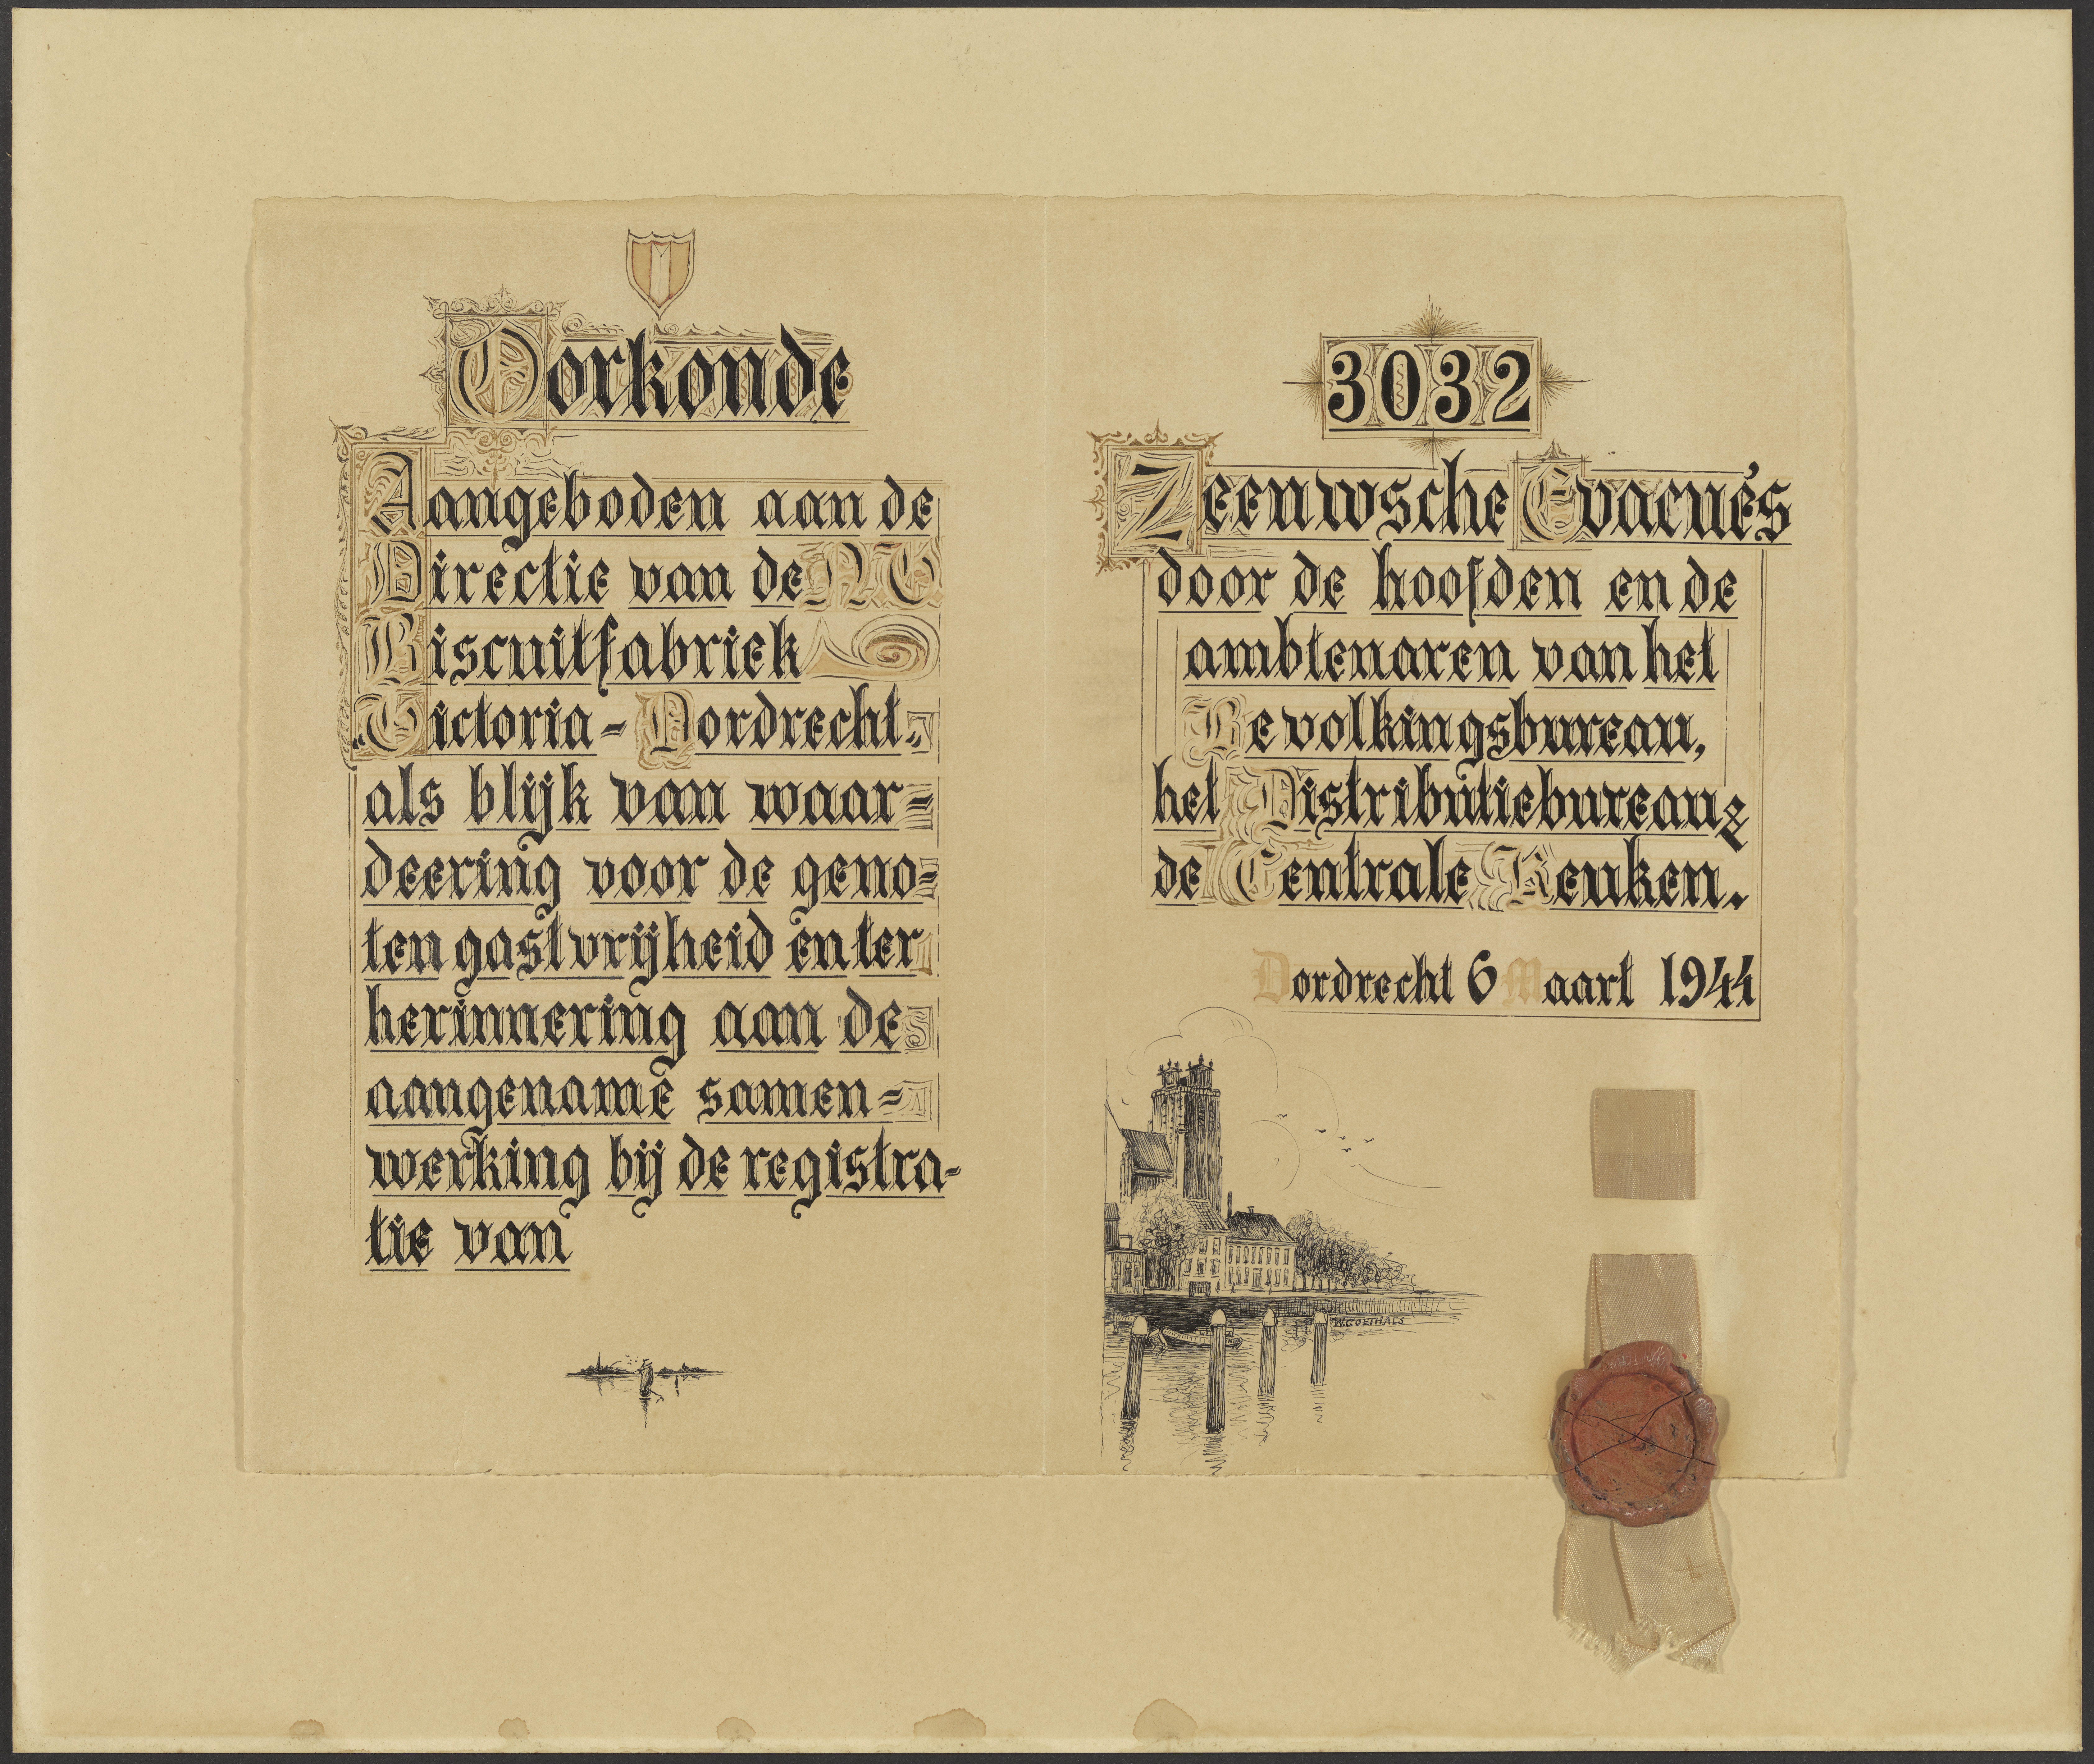 Oorkonde
Aangeboden aan de
Directie van de N.V.
Biscuitfabriek
„Victoria-Dordrecht"
als blijk van waar=
deering voor de geno=
ten gastvrijheid en ter
herinnering aan de
aangename samen=
werking bij de registra-
tie van
3032
Zeeuwsche Evacués
door de hoofden en de
ambtenaren van het
Bevolkingsbureau,
het Distributiebureau &
de Centrale Keuken.
Dordrecht 6 Maart 1944
W.GOETHALS